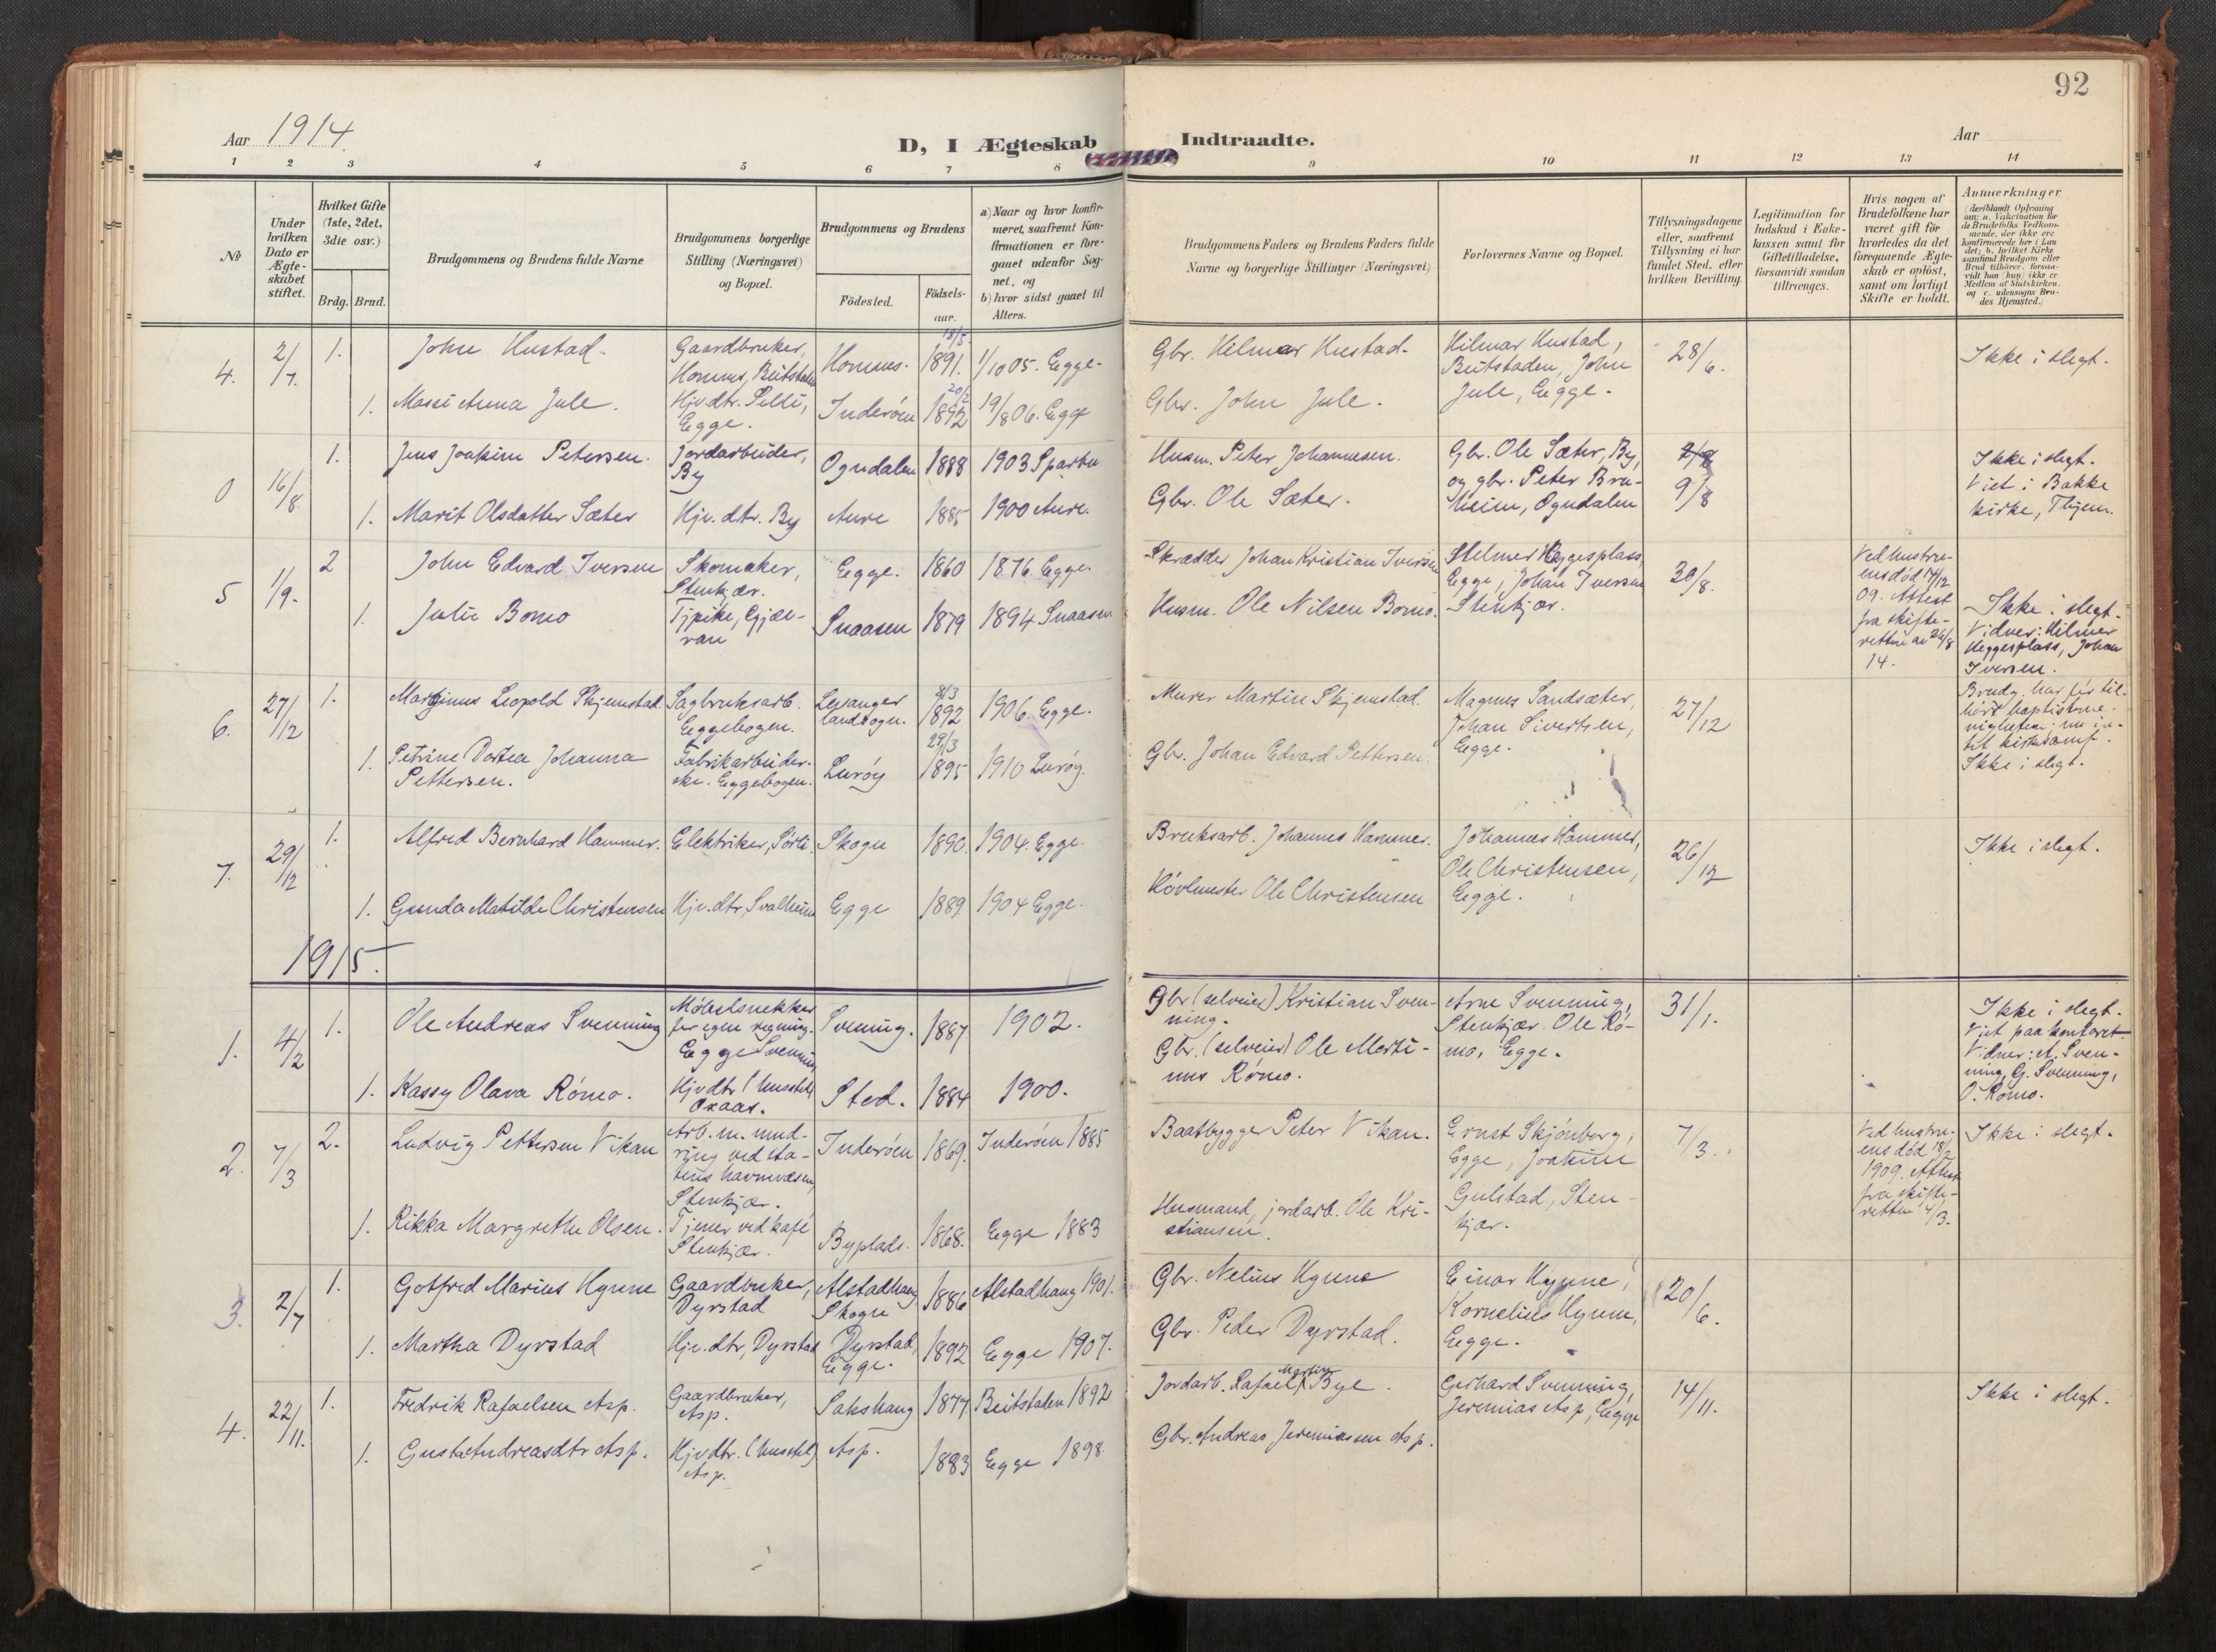 92
Aar 1914.
D, I Ægteskab Indtraadte.
Aar
1 2 3 4 5 6 7 8 9 10 11 12 13 14
No
Under
hvilken
Dato er
Ægte-
skabet
stiftet.
Hvilket Gifte
(1ste, 2det,
3die osv.)
Brdg. Brud.
Brudgommens og Brudens fulde Navne
Brudgommens borgerlige
Stilling (Næringsvei)
og Bopæl.
Brudgommens og Brudens
Födested.
Födsels-
aar.
a) Naar og hvor konfir-
meret, saafremt Kon-
firmationen er fore-
gaaet udenfor Sog-
net, og
b) hvor sidst gaaet til
Alters.
Brudgommens Faders og Brudens Faders fulde
Navne og borgerlige Stillinger (Næringsvei)
Forlovernes Navne og Bopæl.
Tillysningsdagene
eller, saafremt
Tillysning ei har
fundet Sted, efter
hvilken Bevilling.
Legitimation for
Indskud i Enke-
kassen samt for
Giftetilladelse,
forsaavidt saadan
tiltrænges.
Hvis nogen af
Brudefolkene har
været gift för
hvorledes da det
foregaaende Ægte-
skab er oplöst,
samt om lovligt
Skifte er holdt.
Anmerkninger
(deriblandt Oplysning
om: a. Vakcination for
de Brudefolks Vedkom-
mende, der ikke ere
konfirmerede her i Lan
det; b. hvilket Kirke
samfund Brudgom eller
Brud tilhörer, forsaa-
vidt han (hun) ikke er
Medlem af Statskirken.
og c. udensogns Bru-
des Hjemsted.)
4. 2/7. 1. John Hustad. Gaardbruker, Homnes, Beitstaden Homnes. 18/5 1891. 1/10 05. Egge. Gbr. Hilmar Hustad. Hilmar Hustad, Beitstaden, John Jule, Egge. 28/6. Ikke i slegt.
1. Massi Anna Jule. Hjv.dtr. Selli, Egge. Inderöen 20/2 1892 19/8 06. Egge Gbr. John Jule.
0 16/8. 1. Jens Joakim Petersen. Jordarbeider, By Ogndalen 1888 1903 Sparbu Husm. Peter Johannesen. Gbr. Ole Sæter, By, og gbr. Peter Bruheim, Ogndalen 9/8 Ikke i slegt. Viet i Bakke kirke, Thjem.
1. Marit Olsdatter Sæter Hjv. dtr. By Aure 1885 1900 Aure. Gbr. Ole Sæter.
5 1/9. 2 John Edvard Iversen Skomaker, Stenkjær. Egge. 1860 1876. Egge. Skrædder Johan Kristian Iversen Hilmer Heggesplass, Egge, Johan Iversen Stenkjær. 30/8. Ved hustruens död 14/12 09. Attest fra skifteretten av 26/8 14. Ikke i slegt. Vidner: Hilmer Heggesplass, Johan Iversen.
1. Julie Bomo Tjpike, Gjævran Snaasen 1879 1894 Snaasen Husm. Ole Nilsen Bomo.
6. 27/12 1. Marginus Leopold Skjemstad Sagbruksarb. Eggebogen. Levanger landsogn. 8/3 1892 1906. Egge. Murer Martin Skjemstad. Magnus Sandsæter, Johan Sivertsen, Egge. 27/12 Brudg. har för tilhört baptistme-nigheten; nu intet kirkesamf. Ikke i slegt.
1. Petrine Dortea Johanna Pettersen. Fabrikarbeiderske. Eggebogen. Luröy 29/3 1895 1910 Luröy. Gbr. Johan Edvard Pettersen.
7. 29/12 1. Alfred Bernhard Hammer. Elektriker, Sørli. Skogn 1890. 1904. Egge. Bruksarb. Johannes Hammer. Johannes Hammer, Ole Christensen, Egge. 26/12 Ikke i slegt.
1. Gunda Matilde Christensen Hjv.dtr. Svalheim Egge 1889 1904 Egge. Hövlmester Ole Christensen
1915.
1. 4/2 1. Ole Andreas Svenning Möbelsnekker for egen regning. Egge Svenning Svenning. 1887 1902. Gbr. (selveier) Kristian Svenning. Arne Svenning, Stenkjær. Ole Römo, Egge. 31/1. Ikke i slegt. Viet paa kontoret. Vidner: A. Svenning, G. Svenning, O. Römo.
1. Kassy Olava Römo. Hjv.dtr. (husstel) Oxaas. Sted. 1884 1900. Gbr. (selveier) Ole Martinus Römo.
2. 7/3 2. Ludvig Pettersen Vikan Arb. m. mudring ved statens havnevæsen, Stenkjær. Inderöen 1869. Inderöen 1885 Baatbygger Peter Vikan. Ernst Skjönberg, Egge, Joakim Gulstad, Stenkjær. 7/3. Ved hustruens död 18/2 1909. Attest fra skifteretten 4/3. Ikke i slegt.
1. Rikka Margrethe Olsen. Tjener ved kafé Stenkjær. Byplads. 1868. Egge 1883 Husmand, jordarb. Ole Kristiansen.
3. 2/7 1. Gotfred Marius Hynne Gaardbruker, Dyrstad Alstadhaug Skogn 1886 Alstadhaug 1901. Gbr. Nelius Hynne Einar Hynne, Kornelius Hynne, Egge. 20/6.
1. Martha Dyrstad Hjv.dtr, Dyrstad Dyrstad, Egge. 1892 Egge 1907. Gbr. Peder Dyrstad.
4. 22/11. 1. Fredrik Rafaelsen Asp. Gaardbruker, Asp. Sakshaug 1877 Beitstaden 1892 Jordarb. Rafael Martin Bye. Gerhard Svenning, Jeremias Asp, Egge 14/11. Ikke i slegt.
1. Gusta Andreasdtr Asp. Hjvdtr. (husstel) Asp. Asp. 1883 Egge 1898. Gbr. Andreas Jeremiassen Asp.